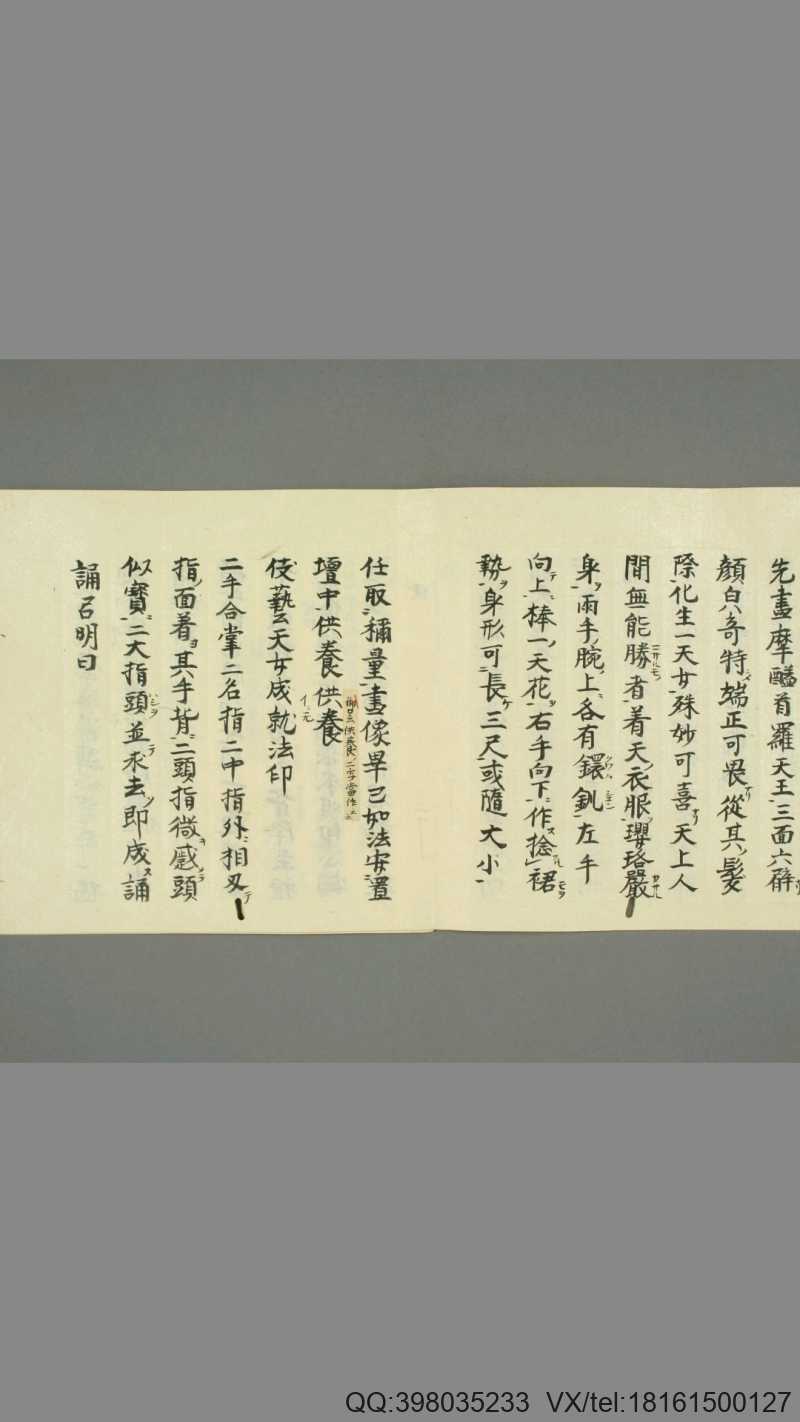 先畫摩醯首羅天王三面六臂
顏皃奇特端正可畏從其髮
際化生一天女殊妙可喜天上人
間無能勝者着天衣服瓔珞嚴
身兩手腕上各有鐶釧左手
向上捧一天花右手向下作捻裙
勢身形可長三尺或隨大小
任取稱量畫像畢已如法安置
壇中供養供養
伎藝天女成就法印
二手合掌二名指二中指外相叉
指面着其手背二頭指微蹙頭
似寶二大指頭並來去即成誦
誦召明曰
QQ:398035233 VX/tel:18161500127